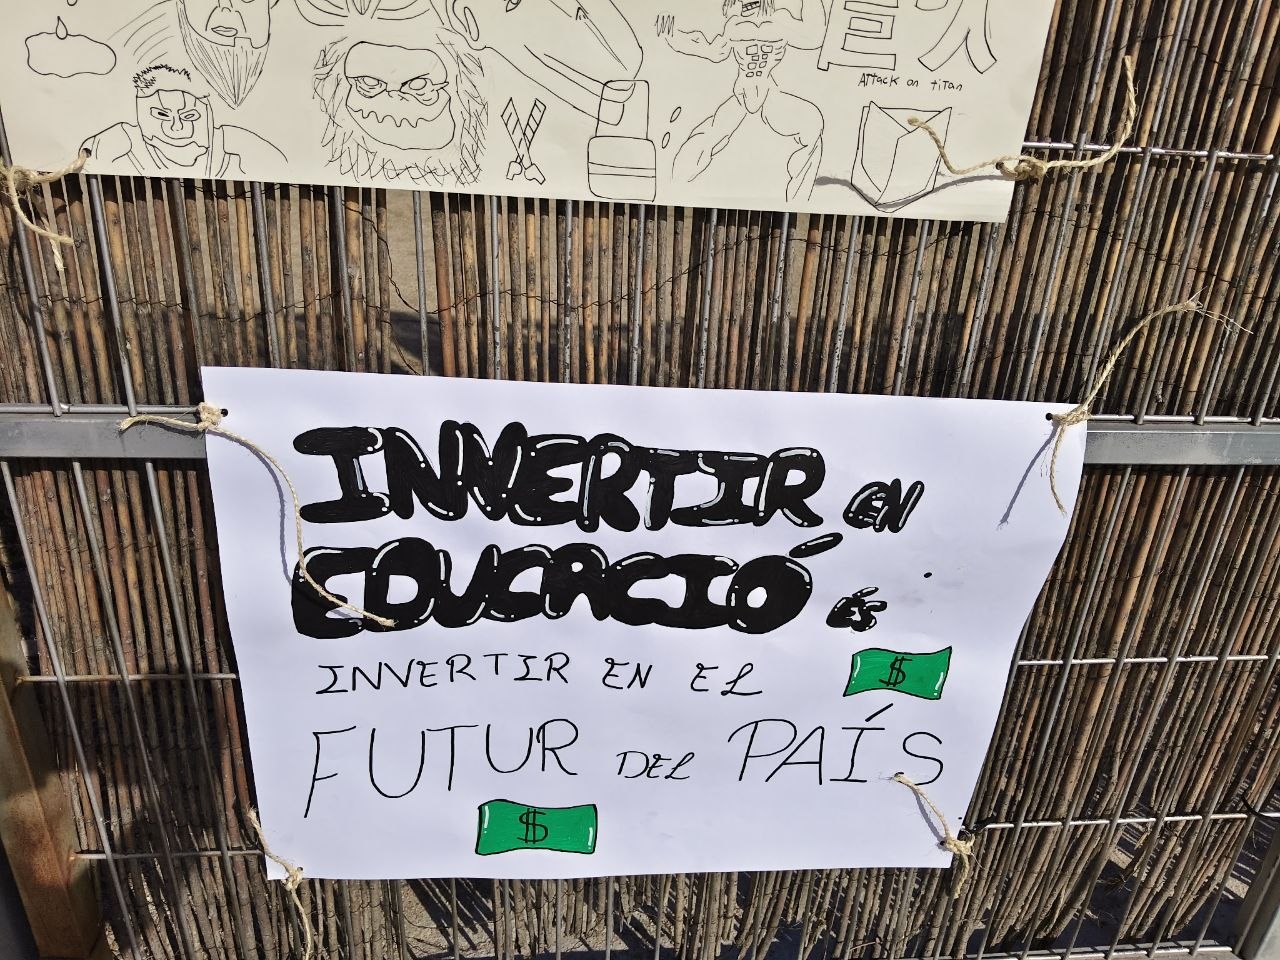 巨人
Attack on titan
INVERTIR EN
EDUCACIÓ ÉS
INVERTIR EN EL
$
FUTUR DEL PAÍS
$